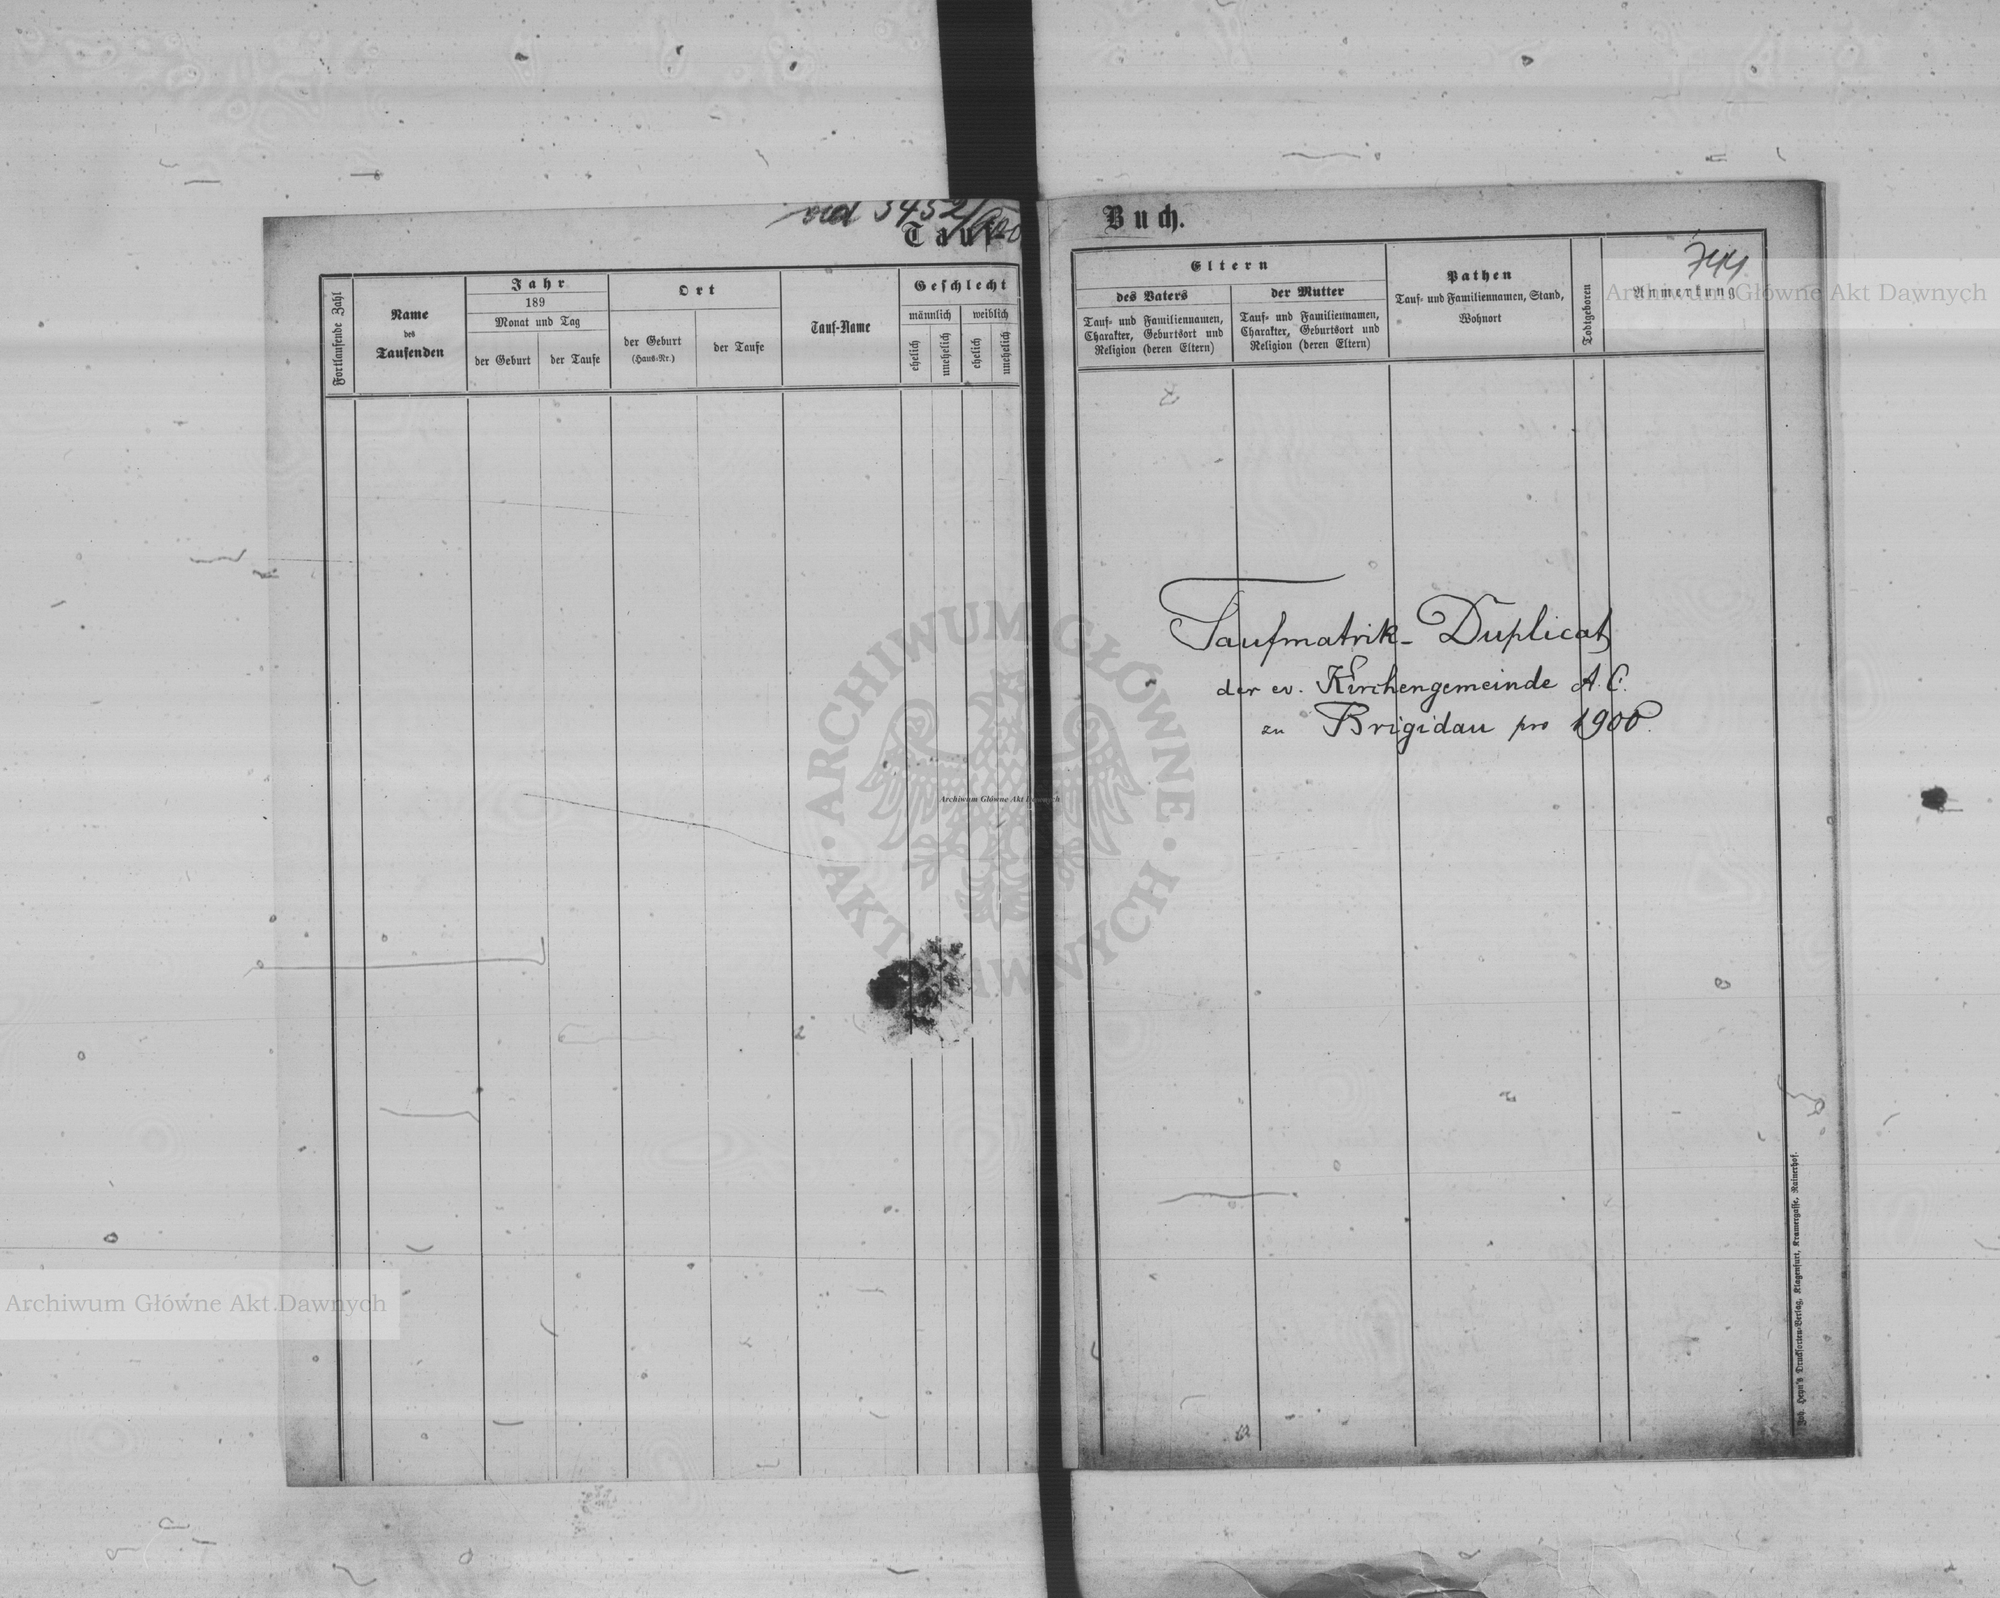 ad 3452/900
Tauf-
Fortlaufende Zahl
Name
des
Taufenden
Jahr
189
Monat und Tag
der Geburt
der Taufe
Ort
der Geburt
(Haus-Nr.)
der Taufe
Tauf-Name
Geschlecht
männlich
weiblich
ehelich
unehelich
ehelich
unehelich
Buch.
744
Eltern
des Vaters
Tauf- und Familiennamen,
Charakter, Geburtsort und
Religion (deren Eltern)
der Mutter
Tauf- und Familiennamen,
Charakter, Geburtsort und
Religion (deren Eltern)
Pathen
Tauf- und Familiennamen, Stand,
Wohnort
Todtgeboren
Anmerkung
Archiwum Główne Akt Dawnych
Taufmatrik-Duplicat
der ev. Kirchengemeinde A.C.
zu Brigidau pro 1900.
ARCHIWUM GŁÓWNE
AKT DAWNYCH
Archiwum Główne Akt Dawnych
Archiwum Główne Akt Dawnych
Joh. Heyn's Drucksorten-Verlag, Klagenfurt, Kramergasse, Rainerhof.